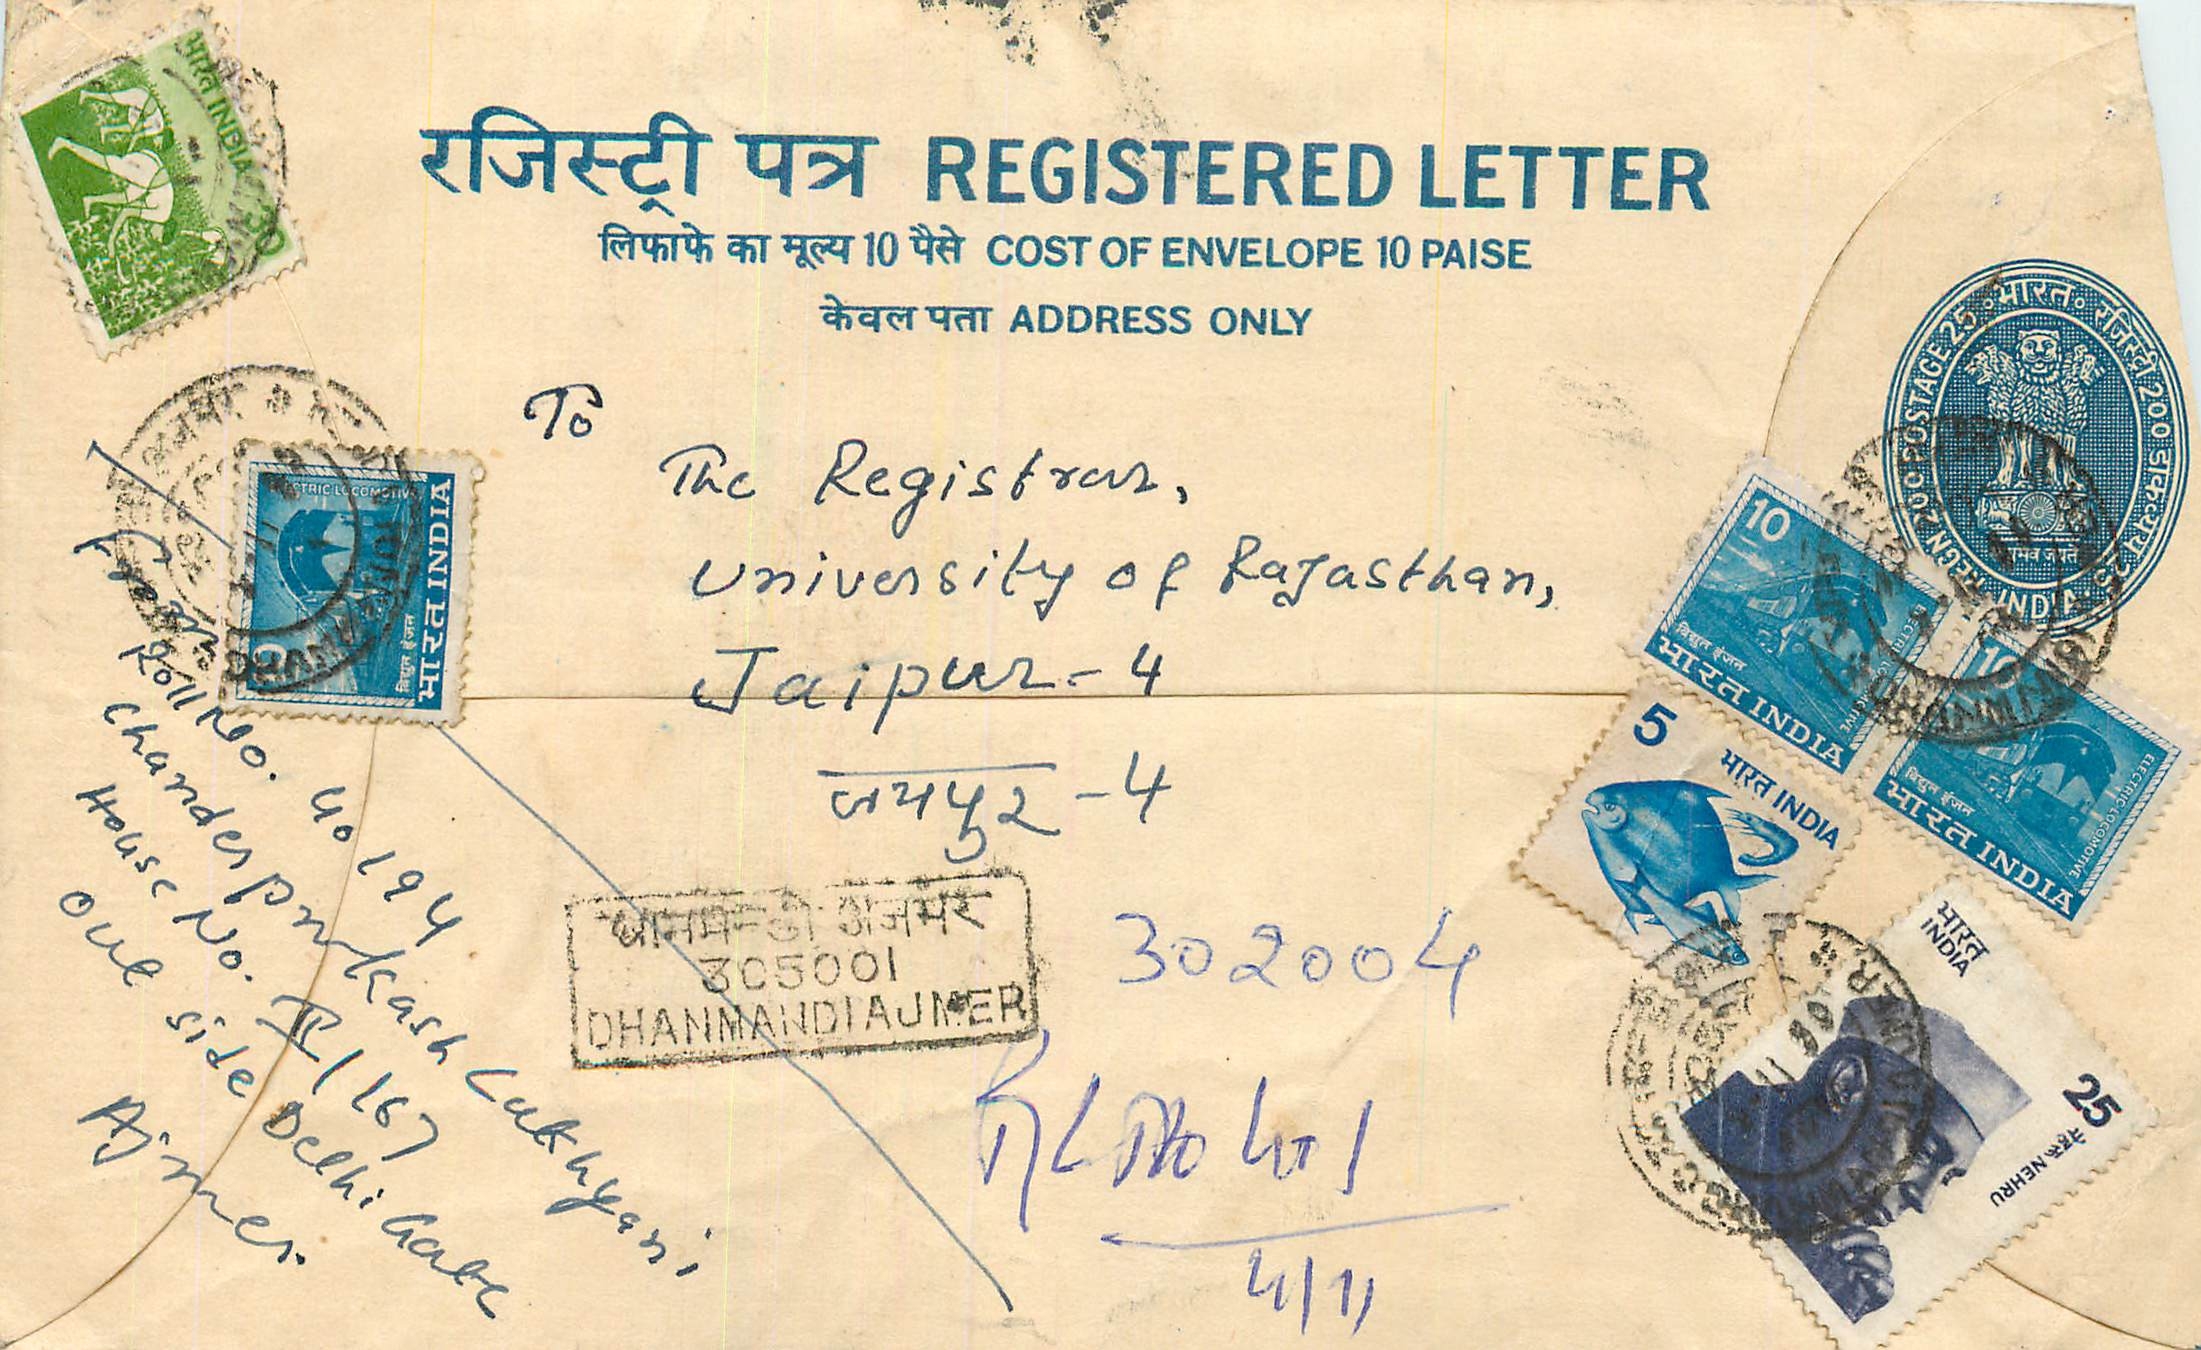 रजिस्ट्री पत्र REGISTERED LETTER
लिफाफे का मूल्य 10 पैसे COST OF ENVELOPE 10 PAISE
केवल पता ADDRESS ONLY
भारत INDIA
भारत रजिस्ट्री 200 डाकटिकट मूल्य 25
REGN 200 POSTAGE 25
INDIA
To
The Registrar,
University of Rajasthan,
Jaipur-4
जयपुर-4
302004
धानमन्डी अजमेर
305001
DHANMANDI AJMER
4/11
From
Roll No. 40194
Chander Prakash Lakhyani
House No. IV/167
Out side Delhi Gate
Ajmer.
ELECTRIC LOCOMOTIVE
विद्युत इंजन
भारत INDIA
10
विद्युत इंजन
ELECTRIC LOCOMOTIVE
भारत INDIA
10
विद्युत इंजन
ELECTRIC LOCOMOTIVE
भारत INDIA
5
भारत INDIA
भारत
INDIA
25
नेहरू NEHRU